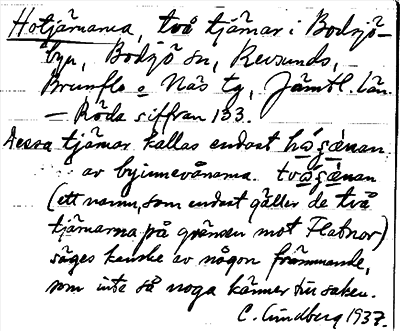 Hotjärnarna, två tjärnar i Bodsjö-
byn, Bodsjö sn, Revsunds,
Brunflo o Näs tg, Jämtl. län.
— Röda siffran 133.
Dessa tjärnar kallas endast
av byinnevånarna.
(ett namn, som endast gäller de två
tjärnarna på gränsen mot Flatnor)
säges kanske av någon främmande,
som inte så noga känner till saken.
C. Lindberg 1937.